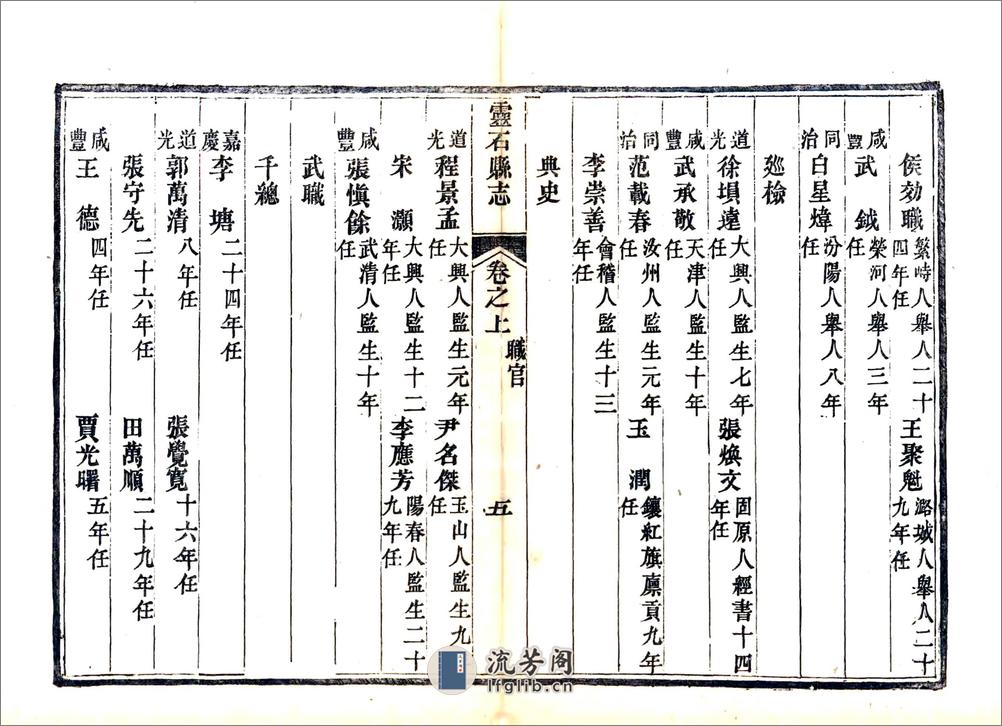 侯効職繁峙人舉人二十四年任　王聚魁潞城人舉人二十九年任
咸豐武　鉞榮河人舉人三年任
同治白星煒汾陽人舉人八年任
廵檢
道光徐塤遠大興人監生七年任　張煥文固原人經書十四年任
咸豐武承敬天津人監生十年任
同治范載春汝州人監生元年任　玉　潤鑲紅旗廪貢九年任
李崇善會稽人監生十三年任
典史
靈石縣志　卷之上　職官　五
道光程景孟大興人監生元年任　尹名傑玉山人監生九年任
宋　灝大興人監生十二年任　李應芳陽春人監生二十九年任
咸豐張愼餘武清人監生十年任
武職
千總
嘉慶李　塘二十四年任
道光郭萬清八年任　張覺寬十六年任
張守先二十六年任　田萬順二十九年任
咸豐王　德四年任　賈光曙五年任
流芳阁
lfglib.cn